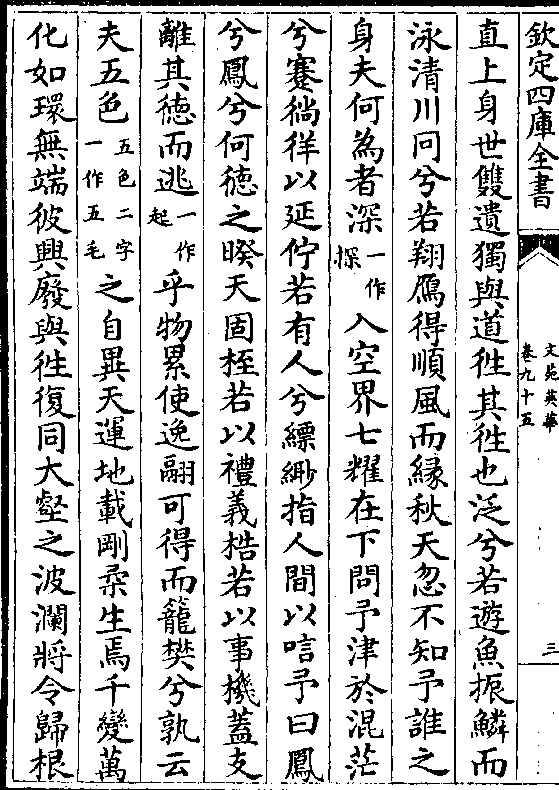 欽定四庫全書
文苑英華
卷九十五
三
直上身世雙遺獨與道徃其徃也泛兮若遊魚振鱗而
泳清川冋兮若翔鴈得順風而縁秋天忽不知予誰之
身夫何為者深一作探入空界七耀在下問予津於混茫
兮蹇徜徉以延佇若有人兮縹緲指人間以唁予曰鳳
兮鳳兮何徳之暌天固桎若以禮義梏若以事機蓋支
離其徳而逃一作起乎物累使逸翮可得而籠樊兮孰云
夫五色五色二字一作五毛之自異天運地載剛柔生焉千變萬
化如環無端彼興廢與徃復同大壑之波瀾將令歸根